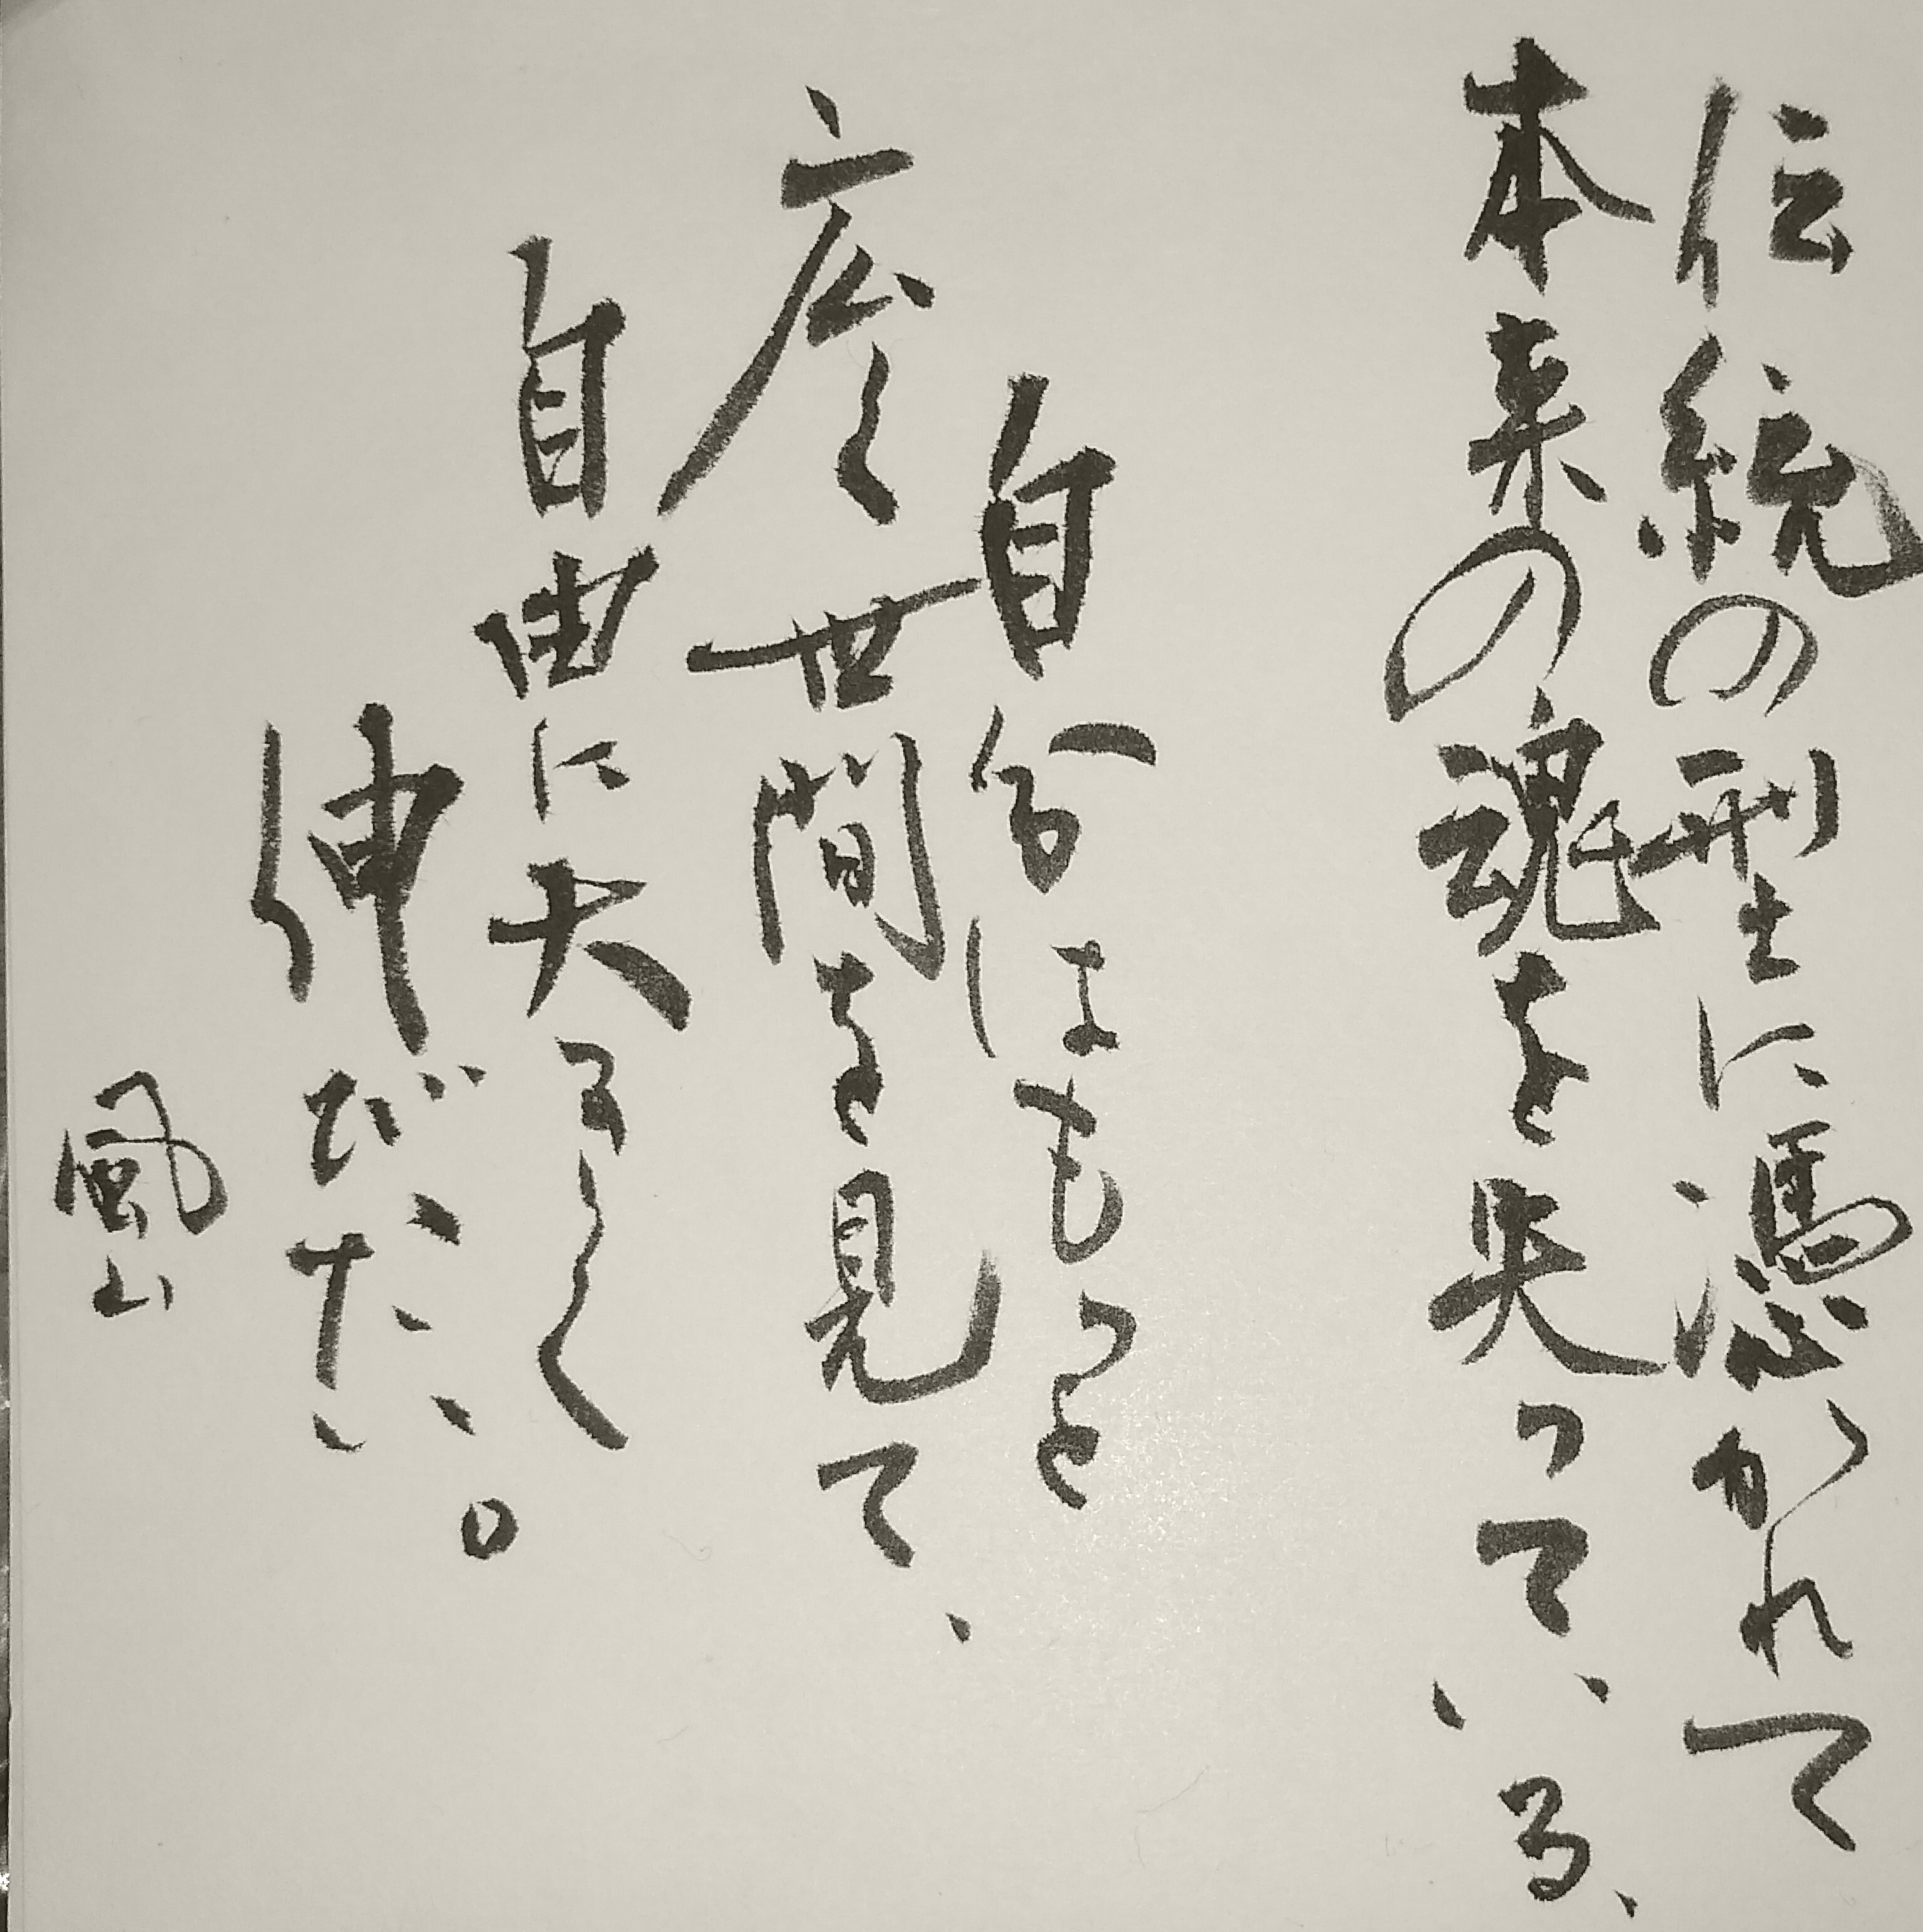 伝統の型に憑かれて
本来の魂を失っている、
自分はもっと
広く世間を見て、
自由に大きく
伸びたい。
風山